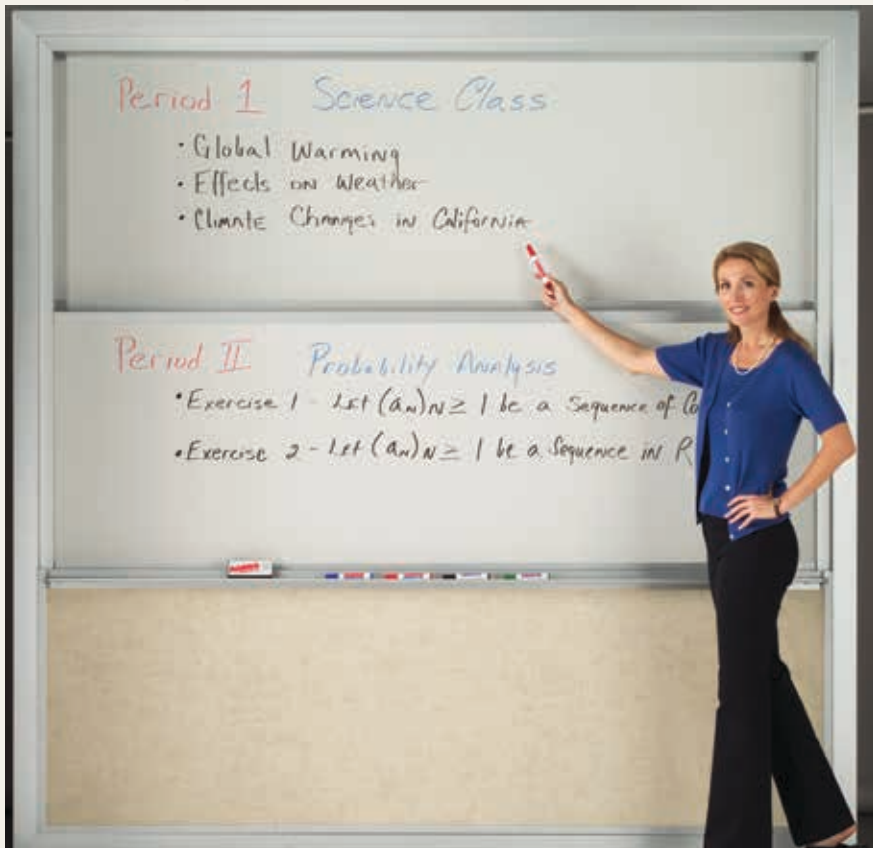 Period 1 Science Class
• Global Warming
• Effects on Weather
• Climate Changes in California
Period II Probability Analysis
• Exercise 1 - Let (aₙ)ₙ ≥ 1 be a Sequence of Co
• Exercise 2 - Let (aₙ)ₙ ≥ 1 be a Sequence in R